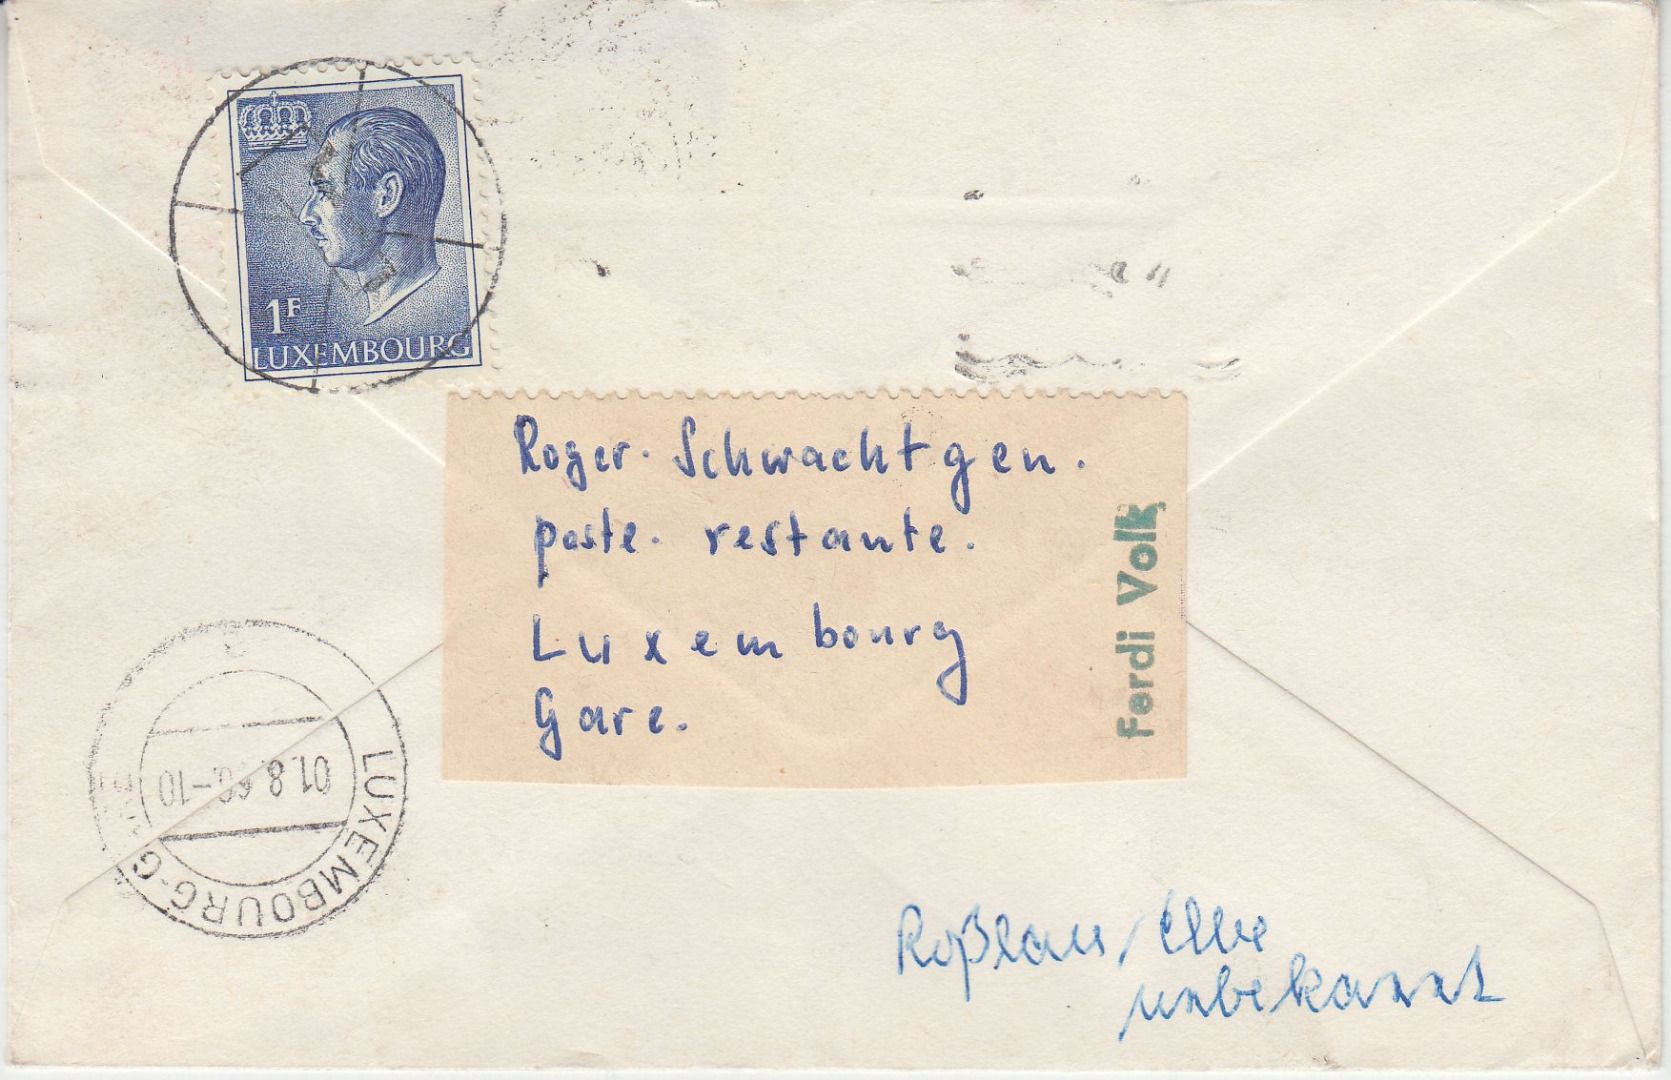 1F
LUXEMBOURG
Roger. Schwachtgen.
poste. restante.
Luxembourg
Gare.
Ferdi Volk
LUXEMBOURG-G
01.8. -10
Roßlau / Elbe
unbekannt